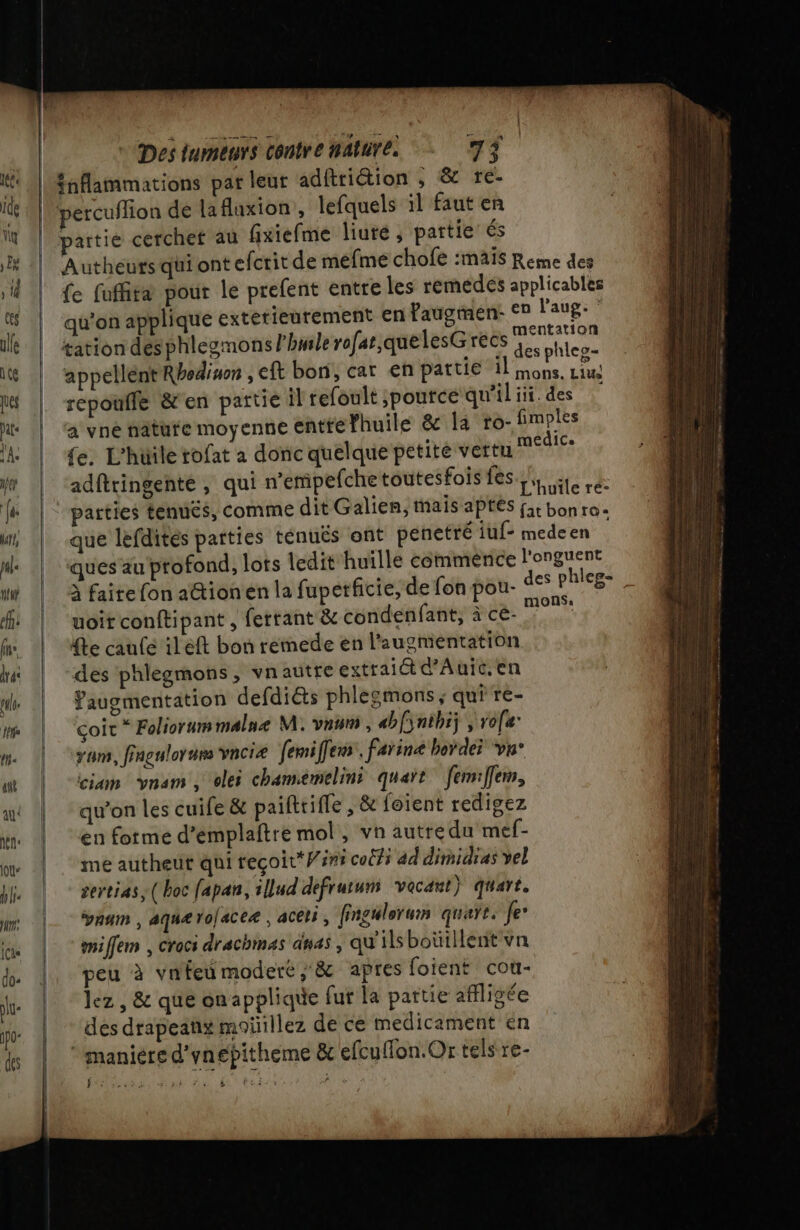 Des tumeurs contre nature. 73
inflammations par leur adſtriction ; & re-
percuſſion de la fluxion, leſquels il faut en
partie cercher au ſixieſme liure, partie és
Autheurs qui ont eſcrit de meſme choſe : mais
ſe ſuffira pour le preſent entre les remedes
qu'on applique exterieurement en l'augmen-
tation des phlegmons l'huile roſat, que les Grecs
appellent Rhodinon, eſt bon, car en partie il
repouſſe & en partie il reſoult ; pource qu'il
a vne nature moyenne entre l'huile & la ro-
ſe. L'huile roſat a donc quelque petite vertu
adſtringente, qui n'empeſche toutesfois ſes
parties tenuës, comme dit Galien, mais apres
que leſdites parties tenuës ont penetré iuſ-
ques au profond, lors ledit huille commence
à faire ſon action en la ſuperficie, de ſon pou-
uoir conſtipant, ſerrant & condenſant, à ce-
ſte cauſe il eſt bon remede en l'augmentation
des phlegmons, vn autre extraict d'Auic. en
l'augmentation deſdicts phlegmons ; qui re-
çoit * Foliorum maluæ M. vnum, abſynthij, roſa-
rum, ſingulorum vnciæ ſemiſſem, farinæ hordei vn-
ciam vnam, olei chamæmelini quart ſemiſſem,
qu'on les cuiſe & paiſtriſſe, & ſoient redigez
en forme d'emplaſtre mol, vn autre du meſ-
me autheur qui reçoit* Vini cocti ad dimidias vel
tertias, (hoc ſapan, illud defrutum vocant) quart.
vnum, aquæ roſaceæ, aceti, ſingulorum quart. ſe-
miſſem, croci drachmas duas, qu'ils boüillent vn
peu à vn feu moderé, & apres ſoient cou-
lez, & que on applique ſur la partie affligée
des drapeaux moüillez de ce medicament en
maniere d'vn epitheme & eſcuſſon. Or tels re-
Reme des
applicables
en l'aug-
mentation
des phleg-
mons. Liu.
iii. des
ſimples
medic.
L'huile re-
ſat bon ro-
mede en
l'onguent
des phleg-
mons.